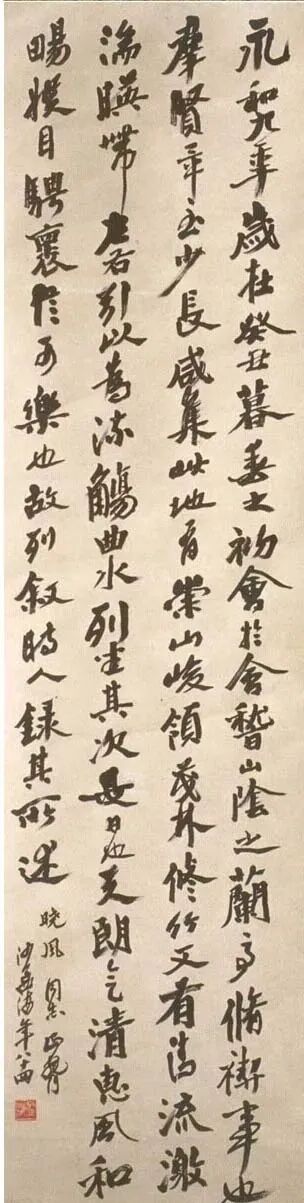 永和九年歲在癸丑暮春之初會於會稽山陰之蘭亭脩禊事也
羣賢畢至少長咸集此地有崇山峻領茂林修竹又有清流激
湍暎帶左右引以為流觴曲水列坐其次是日也天朗气清惠風和
暢娛目騁褱信可樂也故列敘時人錄其所述
曉風同志正
沙孟海年八十四